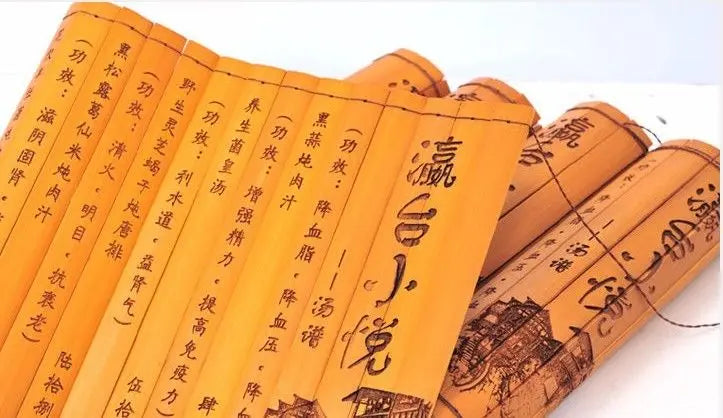 瀛台小悦
——汤谱
黑蒜炖肉汁
(功效：降血脂，降血压，降
养生菌皇汤 肆
(功效：增强精力，提高免疫力)
野生灵芝蝎子炖唐排 伍拾
(功效：利水道，益肾气)
黑松露葛仙米炖肉汁 陆拾捌
(功效：清火，明目，抗衰老)
(功效：滋阴固肾，
瀛
瀛台小悦
——汤谱